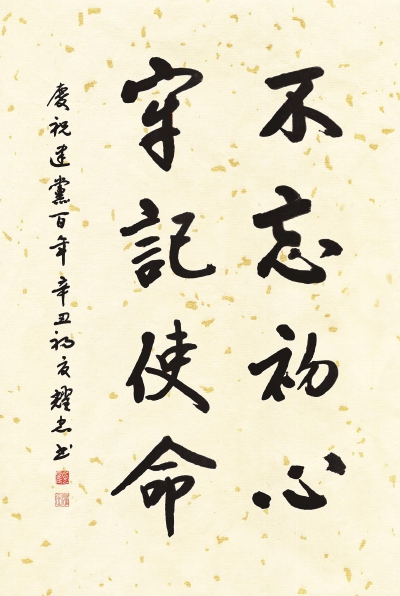 不忘初心
牢記使命
慶祝建黨百年 辛丑初夏耀忠书